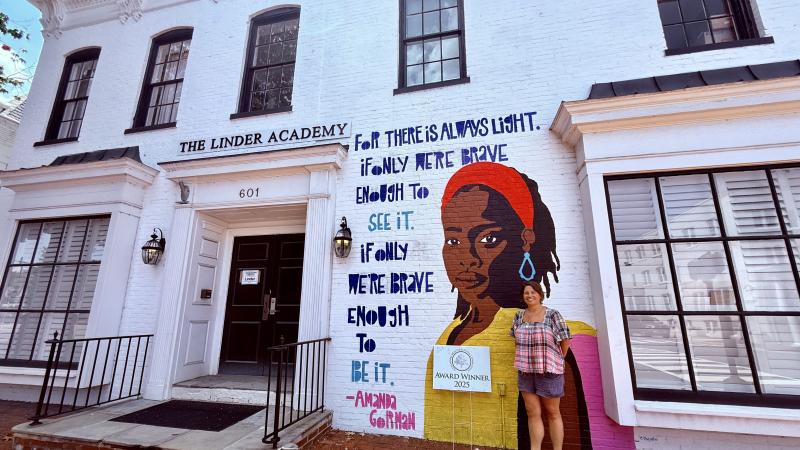 THE LINDER ACADEMY
601
Linder
FOR THERE IS ALWAYS LIGHT.
if ONLY WE'RE BRAVE
ENOUGH TO
SEE IT.
if ONLY
WE'RE BRAVE
ENOUGH
TO
BE IT.
—AMANDA
GORMAN
AWARD WINNER
2025